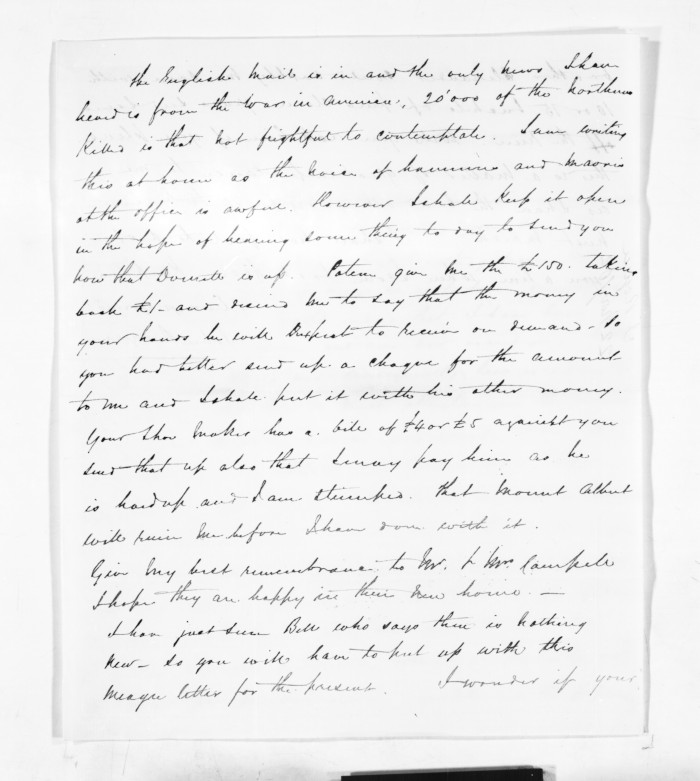 the English Mail is in and the only news I have
heard is from the War in America, 20'000 of the northerns
Killed is that not frightful to contemplate. I am writing
this at home as the noise of hammering and Maoris
at the office is awful. However I shall keep it open
in the hope of hearing some thing to day to send you
now that Donald is up. give me the £150. taking
back £1 - and desired me to say that the money in
your hands he will expect to receive on demand - So
you had better send up a cheque for the amount
to me and I shall put it with his other money.
Your Shoe Maker has a bill of £4 or £5 against you
send that up also that I may pay him as he
is hard up and I am stumped. That Mount Albert
will ruin me before I have done with it.
Give my best remembrance to Mr. & Mrs Campell
I hope they are happy in their New home. —
I have just seen Bell who says there is nothing
New - So you will have to put up with this
Meagre letter for the present. I wonder if your